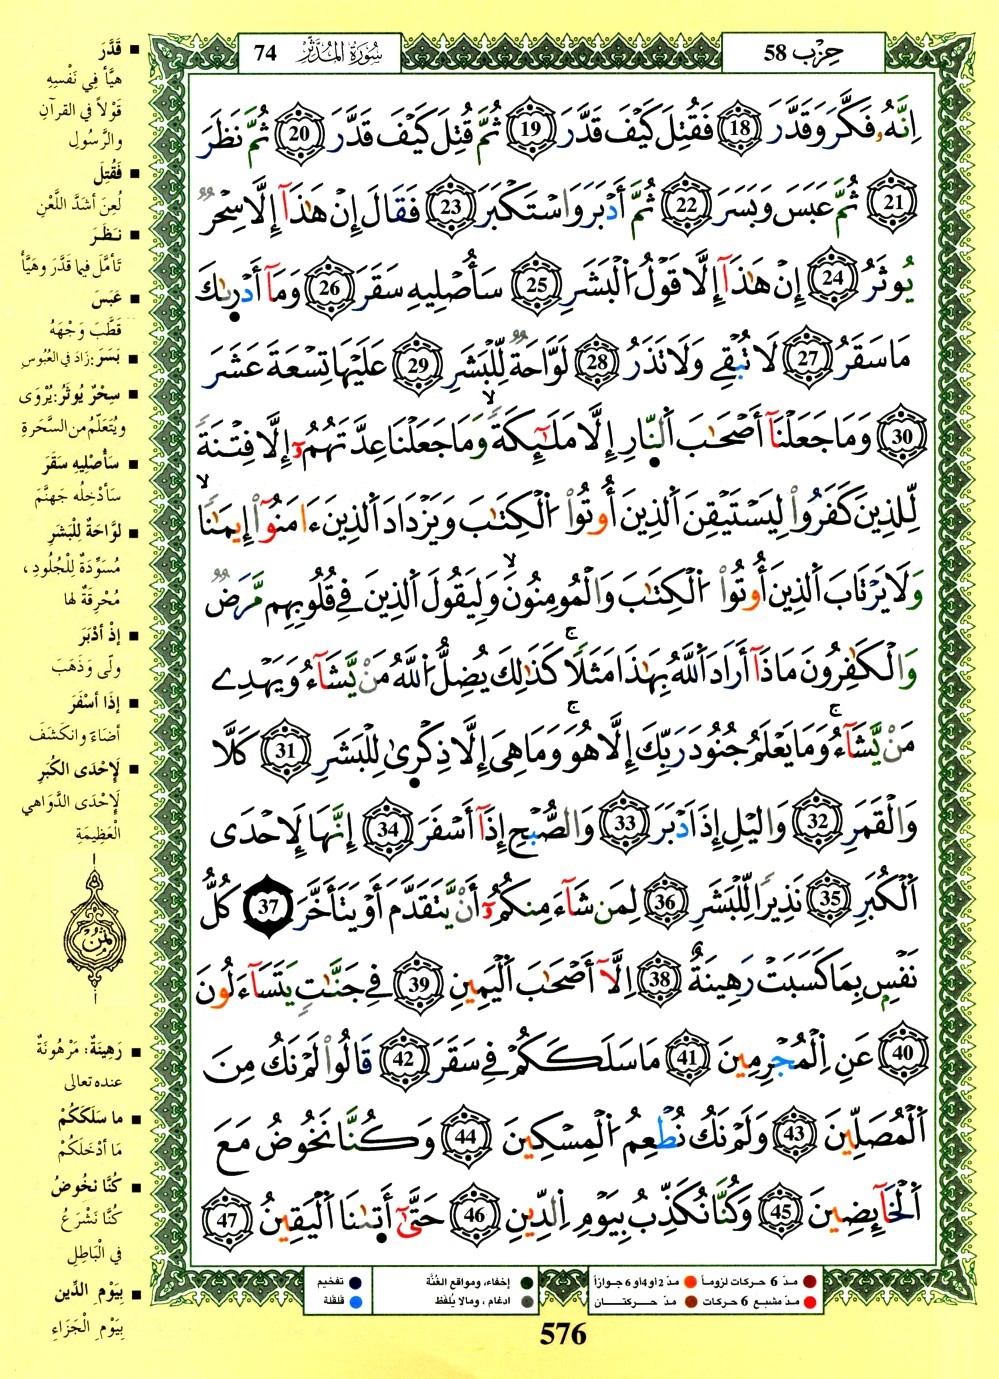 حِزْب 58
سُورَةُ المُدَّثِّر 74
إِنَّهُۥ فَكَّرَ وَقَدَّرَ 18 فَقُتِلَ كَيْفَ قَدَّرَ 19 ثُمَّ قُتِلَ كَيْفَ قَدَّرَ 20 ثُمَّ نَظَرَ
21 ثُمَّ عَبَسَ وَبَسَرَ 22 ثُمَّ أَدْبَرَ وَاسْتَكْبَرَ 23 فَقَالَ إِنْ هَٰذَآ إِلَّا سِحْرٌ
يُوثَرُ 24 إِنْ هَٰذَآ إِلَّا قَوْلُ اُلْبَشَرِ 25 سَأُصْلِيهِ سَقَرَ 26 وَمَآ أَدْر۪ىٰكَ
مَا سَقَرُ 27 لَا تُبْقِے وَلَا تَذَرُ 28 لَوَّاحَةٌ لِّلْبَشَرِ 29 عَلَيْهَا تِسْعَةَ عَشَرَ
30 وَمَا جَعَلْنَآ أَصْحَٰبَ اَلنّ۪ارِ إِلَّا مَلَٰٓئِكَةً وَمَا جَعَلْنَا عِدَّتَهُمُۥٓ إِلَّا فِتْنَةً
لِّلذِينَ كَفَرُواْ لِيَسْتَيْقِنَ اَلذِينَ أُوتُواْ اُلْكِتَٰبَ وَيَزْدَادَ اَلذِينَ ءَامَنُوٓاْ إِيمَٰناً
وَلَا يَرْتَابَ اَلذِينَ أُوتُواْ اُلْكِتَٰبَ وَالْمُومِنُونَ وَلِيَقُولَ اَلذِينَ فِے قُلُوبِهِم مَّرَضٌ
وَالْكَٰفِرُونَ مَاذَآ أَرَادَ اَللَّهُ بِهَٰذَا مَثَلًا كَذَٰلِكَ يُضِلُّ اُللَّهُ مَنْ يَّشَآءُ وَيَهْدِے
مَنْ يَّشَآءُ وَمَا يَعْلَمُ جُنُودَ رَبِّكَ إِلَّا هُوَ وَمَا هِيَ إِلَّا ذِكْر۪ىٰ لِلْبَشَرِ 31 كَلَّا
وَالْقَمَرِ 32 وَاليْلِ إِذَ اَدْبَرَ 33 وَالصُّبْحِ إِذَآ أَسْفَرَ 34 إِنَّهَا لَإِحْدَى
اَلْكُبَرِ 35 نَذِيراً لِّلْبَشَرِ 36 لِمَن شَآءَ مِنكُمُۥٓ أَنْ يَّتَقَدَّمَ أَوْ يَتَأَخَّرَ 37 كُلُّ
نَفْسِۭ بِمَا كَسَبَتْ رَهِينَةٌ 38 اِلَّآ أَصْحَٰبَ اَلْيَمِينِ 39 فِے جَنَّٰتٍ يَتَسَآءَلُونَ
40 عَنِ اِلْمُجْرِمِينَ 41 مَا سَلَكَكُمْ فِے سَقَرَ 42 قَالُواْ لَمْ نَكُ مِنَ
اَلْمُصَلِّينَ 43 وَلَمْ نَكُ نُطْعِمُ اُلْمِسْكِينَ 44 وَكُنَّا نَخُوضُ مَعَ
اَلْخَآئِضِينَ 45 وَكُنَّا نُكَذِّبُ بِيَوْمِ اِلدِّينِ 46 حَتَّىٰٓ أَت۪ىٰنَا اَلْيَقِينُ 47
■ قَدَّرَ
هيَّأَ فِي نَفْسِهِ
قَوْلاً في القرآنِ
والرَّسُولِ
■ فَقُتِلَ
لُعِنَ أشَدَّ اللَّعْنِ
■ نَظَرَ
تَأمَّلَ فيما قَدَّرَ وهَيَّأ
■ عَبَسَ
قَطَّبَ وَجْهَهُ
■ بَسَرَ: زَادَ في العُبُوسِ
■ سِحْرٌ يُوثَرُ: يُرْوَى
ويُتَعَلَّمُ من السَّحَرةِ
■ سَأُصْلِيهِ سَقَرَ
سَأدْخِلُه جَهنَّمَ
■ لوَّاحَةٌ لِلْبَشَرِ
مُسَوِّدَةٌ لِلْجُلُودِ،
مُحْرِقَةٌ لها
■ إذْ أدْبَرَ
ولَّى وَذَهَبَ
■ إذَا أسْفَرَ
أضَاءَ وانكَشَفَ
■ لَإِحْدَى الكُبَرِ
لَإِحْدَى الدَّوَاهي
الْعَظِيمَةِ
ثُمُن
■ رَهِينَةٌ: مَرْهُونَةٌ
عنده تعالى
■ ما سَلَكَكُمْ
مَا أدْخَلَكُمْ
■ كُنَّا نخُوضُ
كُنَّا نَشْرَعُ
في الْبَاطِلِ
■ بِيَوْمِ الدِّين
بِيَوْمِ الْجَزَاءِ
مدّ 6 حركات لزوماً مدّ 2 أو 4 أو 6 جوازاً
مدّ مشبع 6 حركات مدّ حركتـان
إخفاء، ومواقع الغُنَّة
ادغام، ومالا يُلفَظ
تفخيم
قلقلة
576